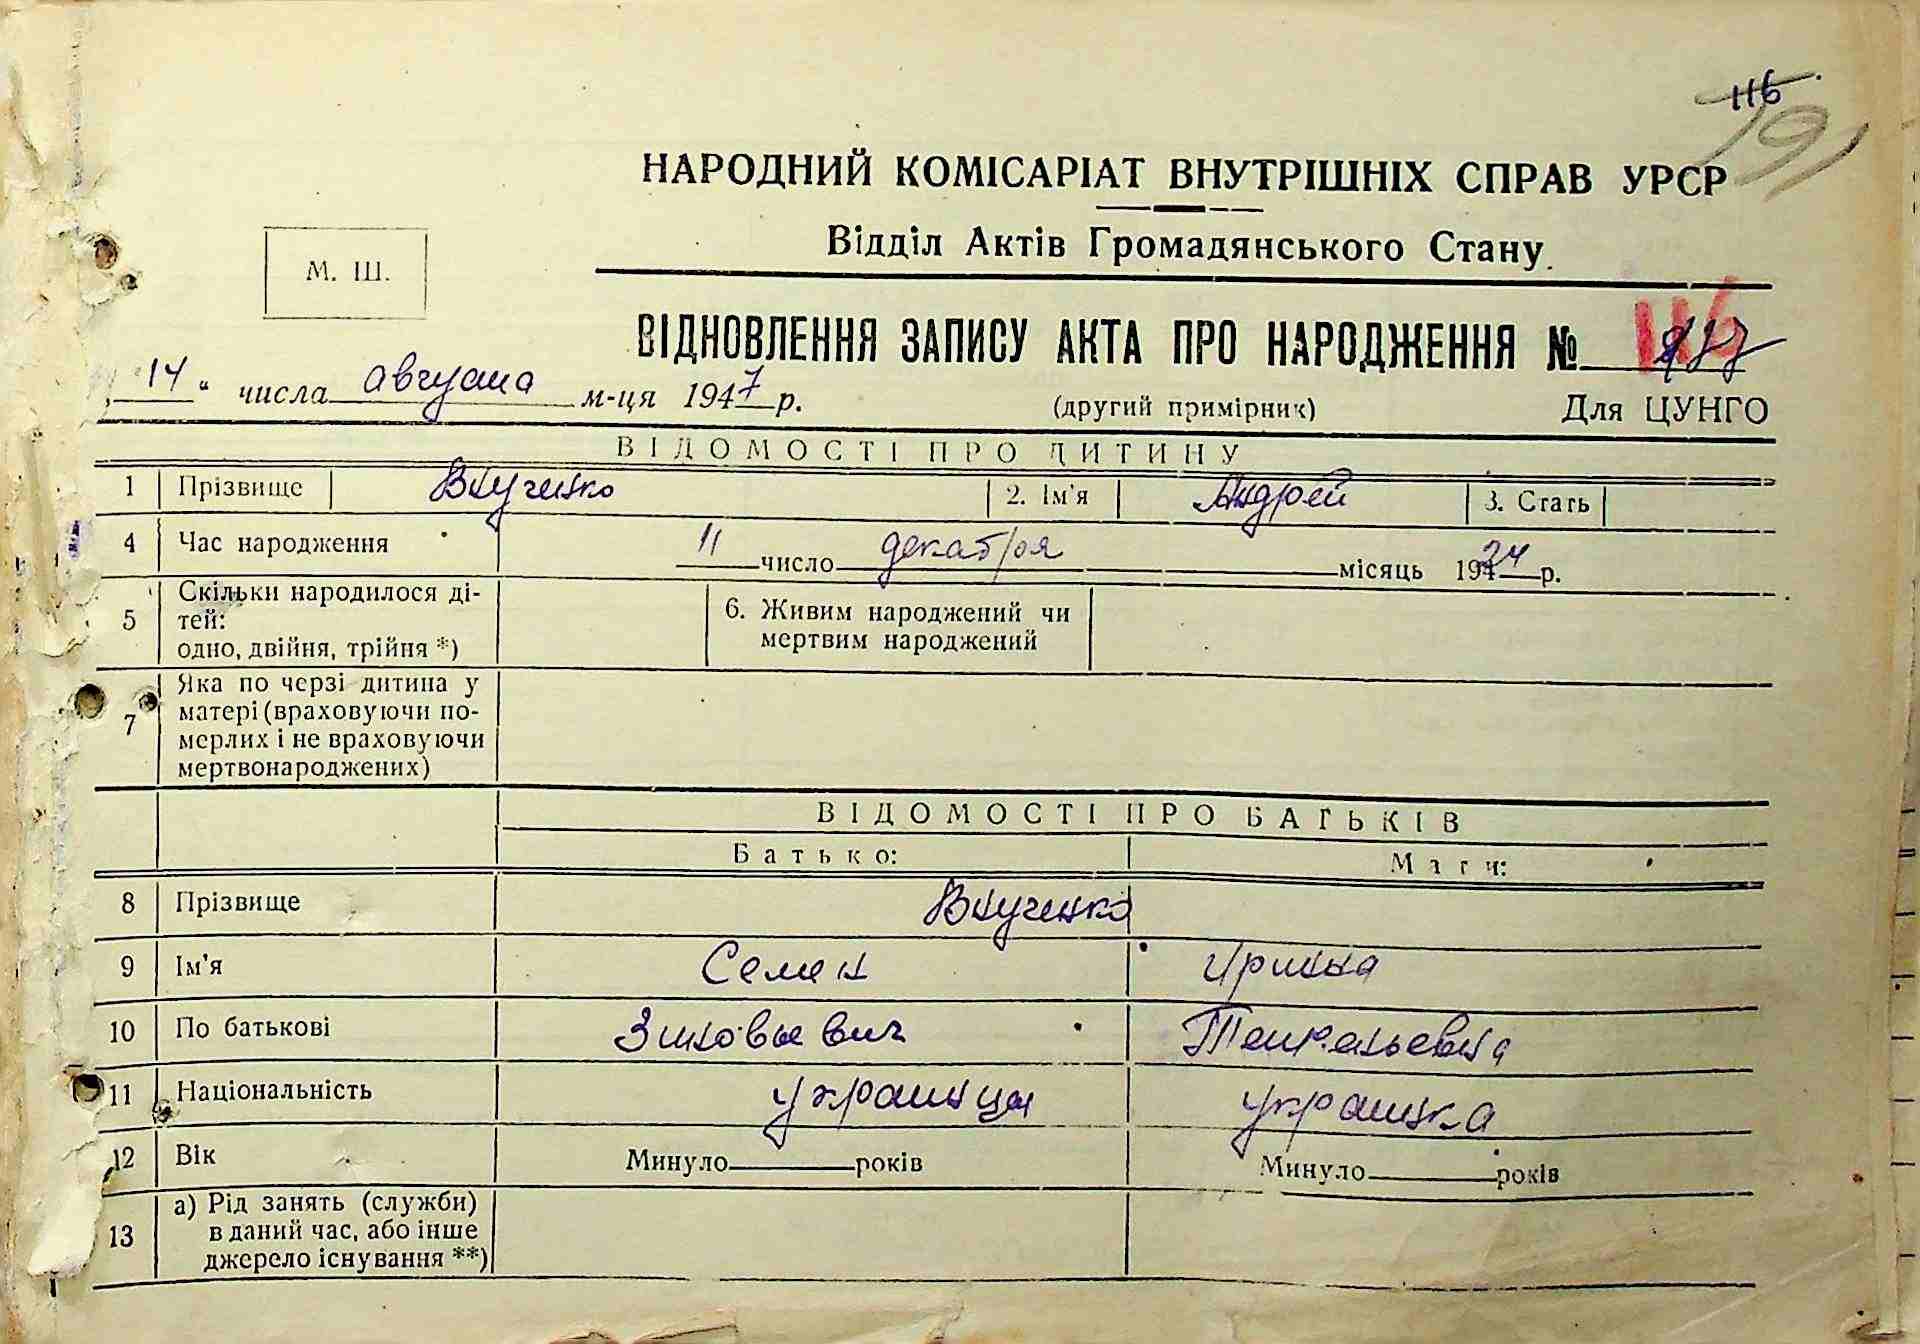 116
191
НАРОДНИЙ КОМІСАРІАТ ВНУТРІШНІХ СПРАВ УРСР
Відділ Актів Громадянського Стану
М. Ш.
ВІДНОВЛЕННЯ ЗАПИСУ АКТА ПРО НАРОДЖЕННЯ № 116
„14“ числа августа м-ця 1947 р. (другий примірник) Для ЦУНГО
ВІДОМОСТІ ПРО ДИТИНУ
1 Прізвище 2. Ім'я Андрей 3. Стать
4 Час народження 11 число декабря місяць 1924 р.
5 Скільки народилося ді-
тей:
одно, двійня, трійня *)
6. Живим народжений чи
мертвим народжений
7 Яка по черзі дитина у
матері (враховуючи по-
мерлих і не враховуючи
мертвонароджених)
ВІДОМОСТІ ПРО БАТЬКІВ
Батько: Мати:
8 Прізвище
9 Ім'я Семен Ирина
10 По батькові Зиновьевич
11 Національність украинец украинка
12 Вік Минуло років Минуло років
13 а) Рід занять (служби)
в даний час, або інше
джерело існування **)